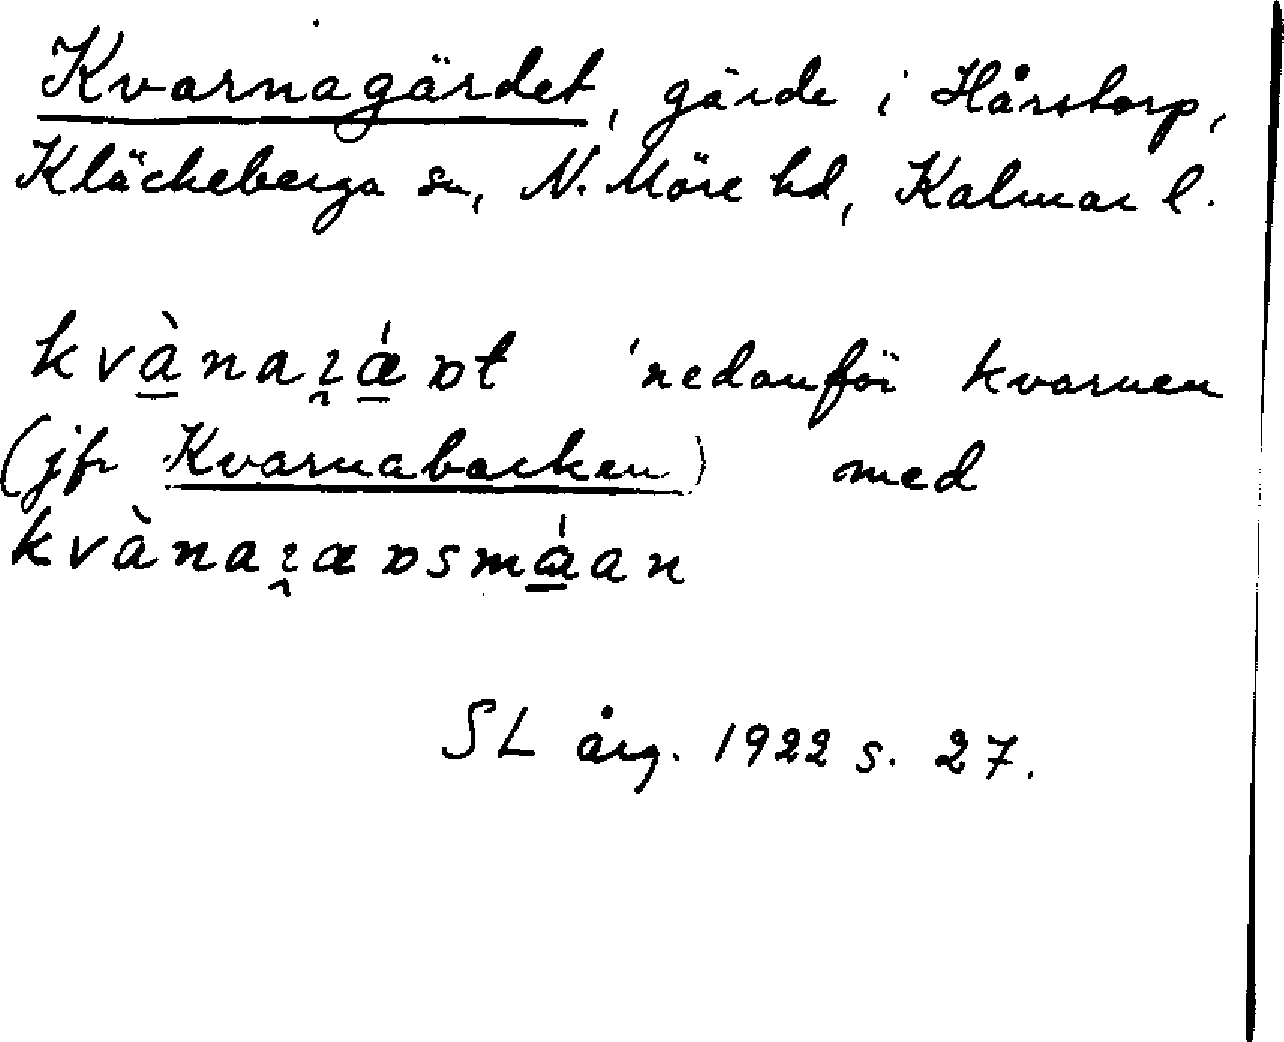 Kvarnagärdet, gärde i Hårstorp,
Kläckeberga sn, N. Möre hd, Kalmar l.
kvànaꞅǽɒt 'nedanför kvarnen
(jfr Kvarnabacken) med
kvànaꞅæɒsmáan
SL årg. 1922 s. 27.